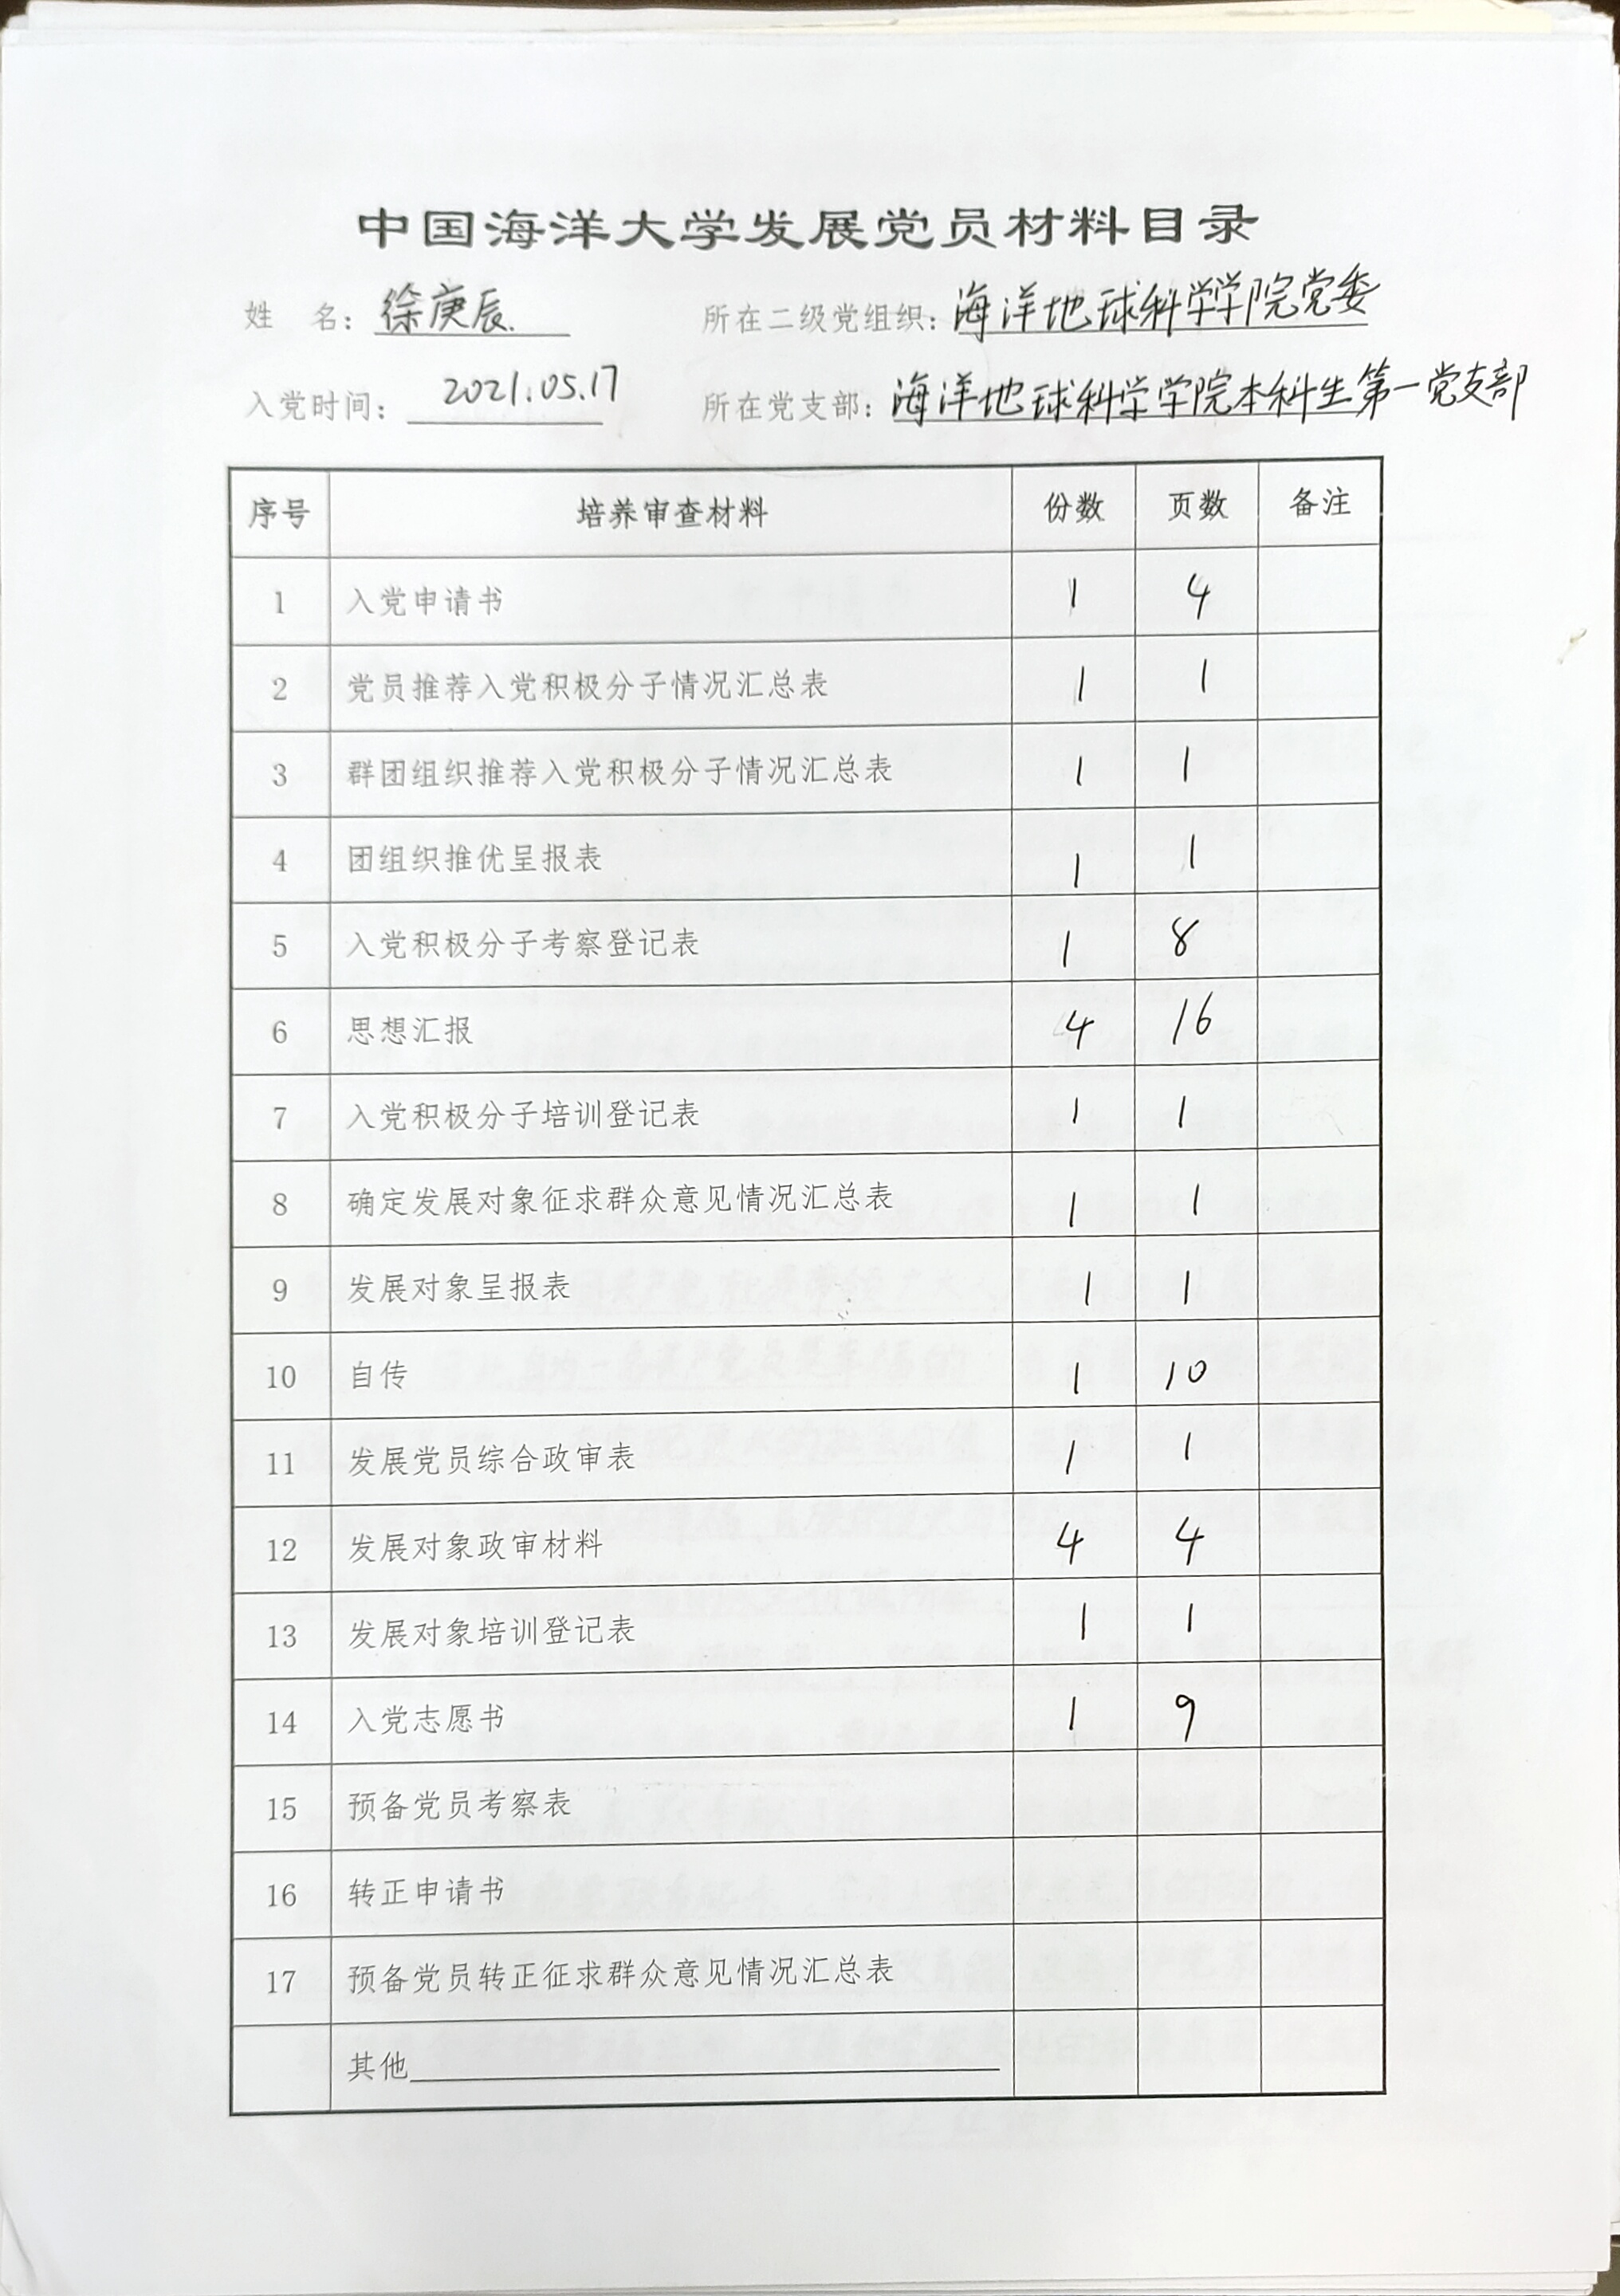 中国海洋大学发展党员材料目录
姓 名：徐庚辰 所在二级党组织：海洋地球科学学院党委
入党时间：2021.05.17 所在党支部：海洋地球科学学院本科生第一党支部
序号 培养审查材料 份数 页数 备注
1 入党申请书 1 4
2 党员推荐入党积极分子情况汇总表 1 1
3 群团组织推荐入党积极分子情况汇总表 1 1
4 团组织推优呈报表 1 1
5 入党积极分子考察登记表 1 8
6 思想汇报 4 16
7 入党积极分子培训登记表 1 1
8 确定发展对象征求群众意见情况汇总表 1 1
9 发展对象呈报表 1 1
10 自传 1 10
11 发展党员综合政审表 1 1
12 发展对象政审材料 4 4
13 发展对象培训登记表 1 1
14 入党志愿书 1 9
15 预备党员考察表
16 转正申请书
17 预备党员转正征求群众意见情况汇总表
其他